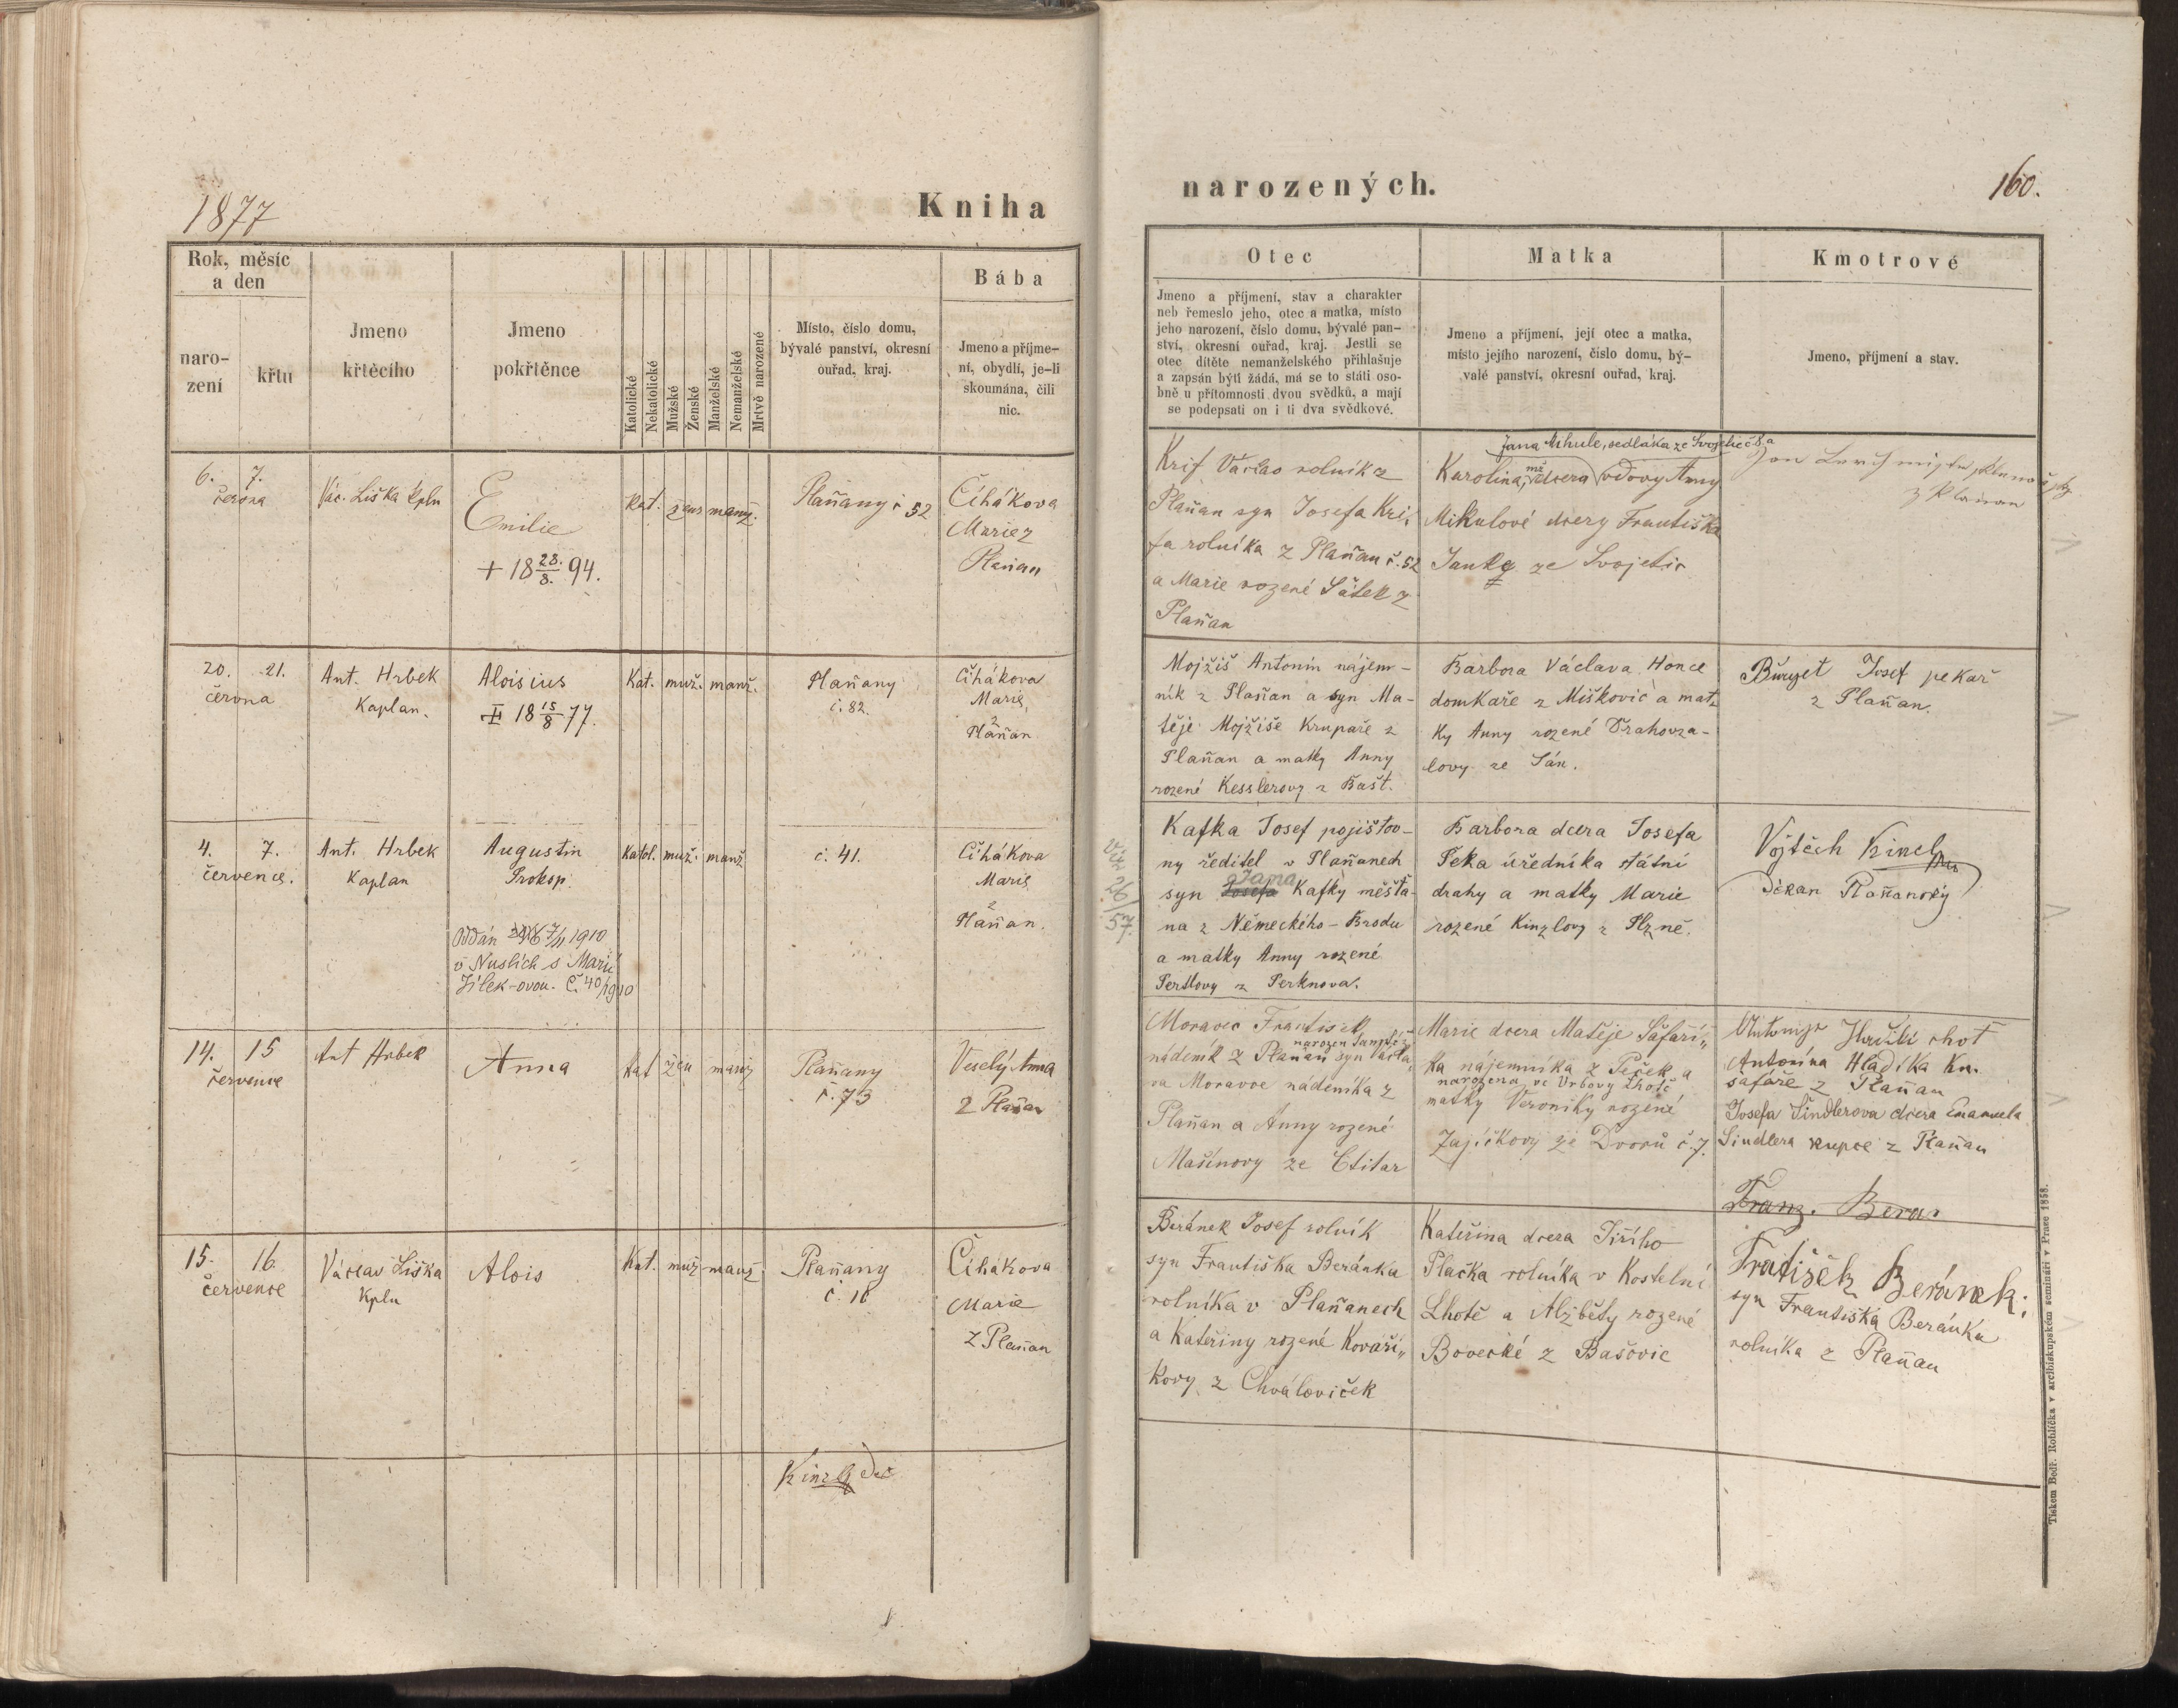 1877
Kniha
Rok, měsíc
a den
naro-
zení
křtu
Jmeno
křtěcího
Jmeno
pokřtěnce
Katolické
Nekatolické
Mužské
Ženské
Manželské
Nemanželské
Mrtvě narozené
Místo, číslo domu,
bývalé panství, okresní
ouřad, kraj.
Bába
Jmeno a příjme-
ní, obydlí, je-li
skoumána, čili
nic.
6. 7.
června
Vác. Liška kpln
Emilie
+ 18 23./8. 94.
kat. žens manž.
Plaňany č 52
Čiháková
Marie z
Plaňan
20. 21.
června
Ant. Hrbek
Kaplan.
Aloisius
18 15/8 77.
Kat. muž. manž.
Plaňany
č. 82.
Čihákova
Marie,
z
Plaňan
4. 7.
července.
Ant. Hrbek
Kaplan
Augustin
Prokop.
Oddán 7/11 1910
v Nuslích s Marií
Jílek-ovou. Č. 40/1910
Katol. muž. manž
č. 41.
Čihákova
Marie
z
Plaňan.
14. 15
července
Ant Hrbek
Anna
kat žen manž
Plaňany
č. 73
Veselý Anna
z Plaňan
15. 16.
července
Václav Liška
kpln
Alois
Kat. muž manž.
Plaňany
č. 16
Čihákova
Marie
z Plaňan
Kinzl
narozených.
160.
Otec
Jmeno a příjmení, stav a charakter
neb řemeslo jeho, otec a matka, místo
jeho narození, číslo domu, bývalé pan-
ství, okresní ouřad, kraj. Jestli se
otec dítěte nemanželského přihlašuje
a zapsán býti žádá, má se to státi oso-
bně u přítomnosti dvou svědků, a mají
se podepsati on i ti dva svědkové.
Matka
Jmeno a příjmení, její otec a matka,
místo jejího narození, číslo domu, bý-
valé panství, okresní ouřad, kraj.
Kmotrové
Jmeno, příjmení a stav.
Krif Václav rolník z
Plaňan syn Josefa Kri-
fa rolníka z Plaňan č. 52
a Marie rozené Sátek z
Plaňan
Jana Mikule, sedláka ze Svojetic č 8 a
Karolina, dcera vdovy Anny
Mikulové dcery Františka
Janky ze Svojetic
Jan
z Plaňan
Mojžiš Antonín nájem-
ník z Plaňan a syn Ma-
těje Mojžiše Krupaře z
Plaňan a matky Anny
rozené Kesslerovy z Bašt.
Barbora Václava Honce
domkaře z Miškovic a mat-
ky Anny rozené Drahovza-
lovy ze Sán.
Burget Josef pekař
z Plaňan.
26/57.
Kafka Josef pojišťov-
ny ředitel v Plaňanech
Jana
syn Josefa Kafky měšťa-
na z Německého-Brodu
a matky Anny rozené
Pertlovy z Perknova.
Barbora dcera Josefa
Peka úředníka státní
drahy a matky Marie
rozené Kinzlovy z Plzně.
Vojtěch Kinzl
Děkan Plaňanský
Moravec František
narozen
nádeník z Plaňan syn Václa-
va Moravce nádeníka z
Plaňan a Anny rozené
Mašínovy ze Ctitar
Marie dcera Matěje Šafaří-
ka nájemníka z Peček a
narozena ve Vrbovy Lhotě
matky Veroniky rozené
Zajíčkovy ze Dvorů č. 7.
choť
Antonína Hladíka kn.
šafáře z Plaňan
Josefa Šindlerova dcera Emanuela
Šindlera kupce z Plaňan
Franz. Beran
Beránek Josef rolník
syn Františka Beránka
rolníka v Plaňanech
a Kateřiny rozené Kovaří-
kovy z Chváloviček
Kateřina dcera Jiřího
Plačka rolníka v Kostelní
Lhotě a Alžběty rozené
Bovecké z Bašovic
Fratišek Beránek:
syn Františka Beránka
rolníka z Plaňan
Tiskem Bedř. Rohlíčka v arcibiskupském semináři v Praze 1858.